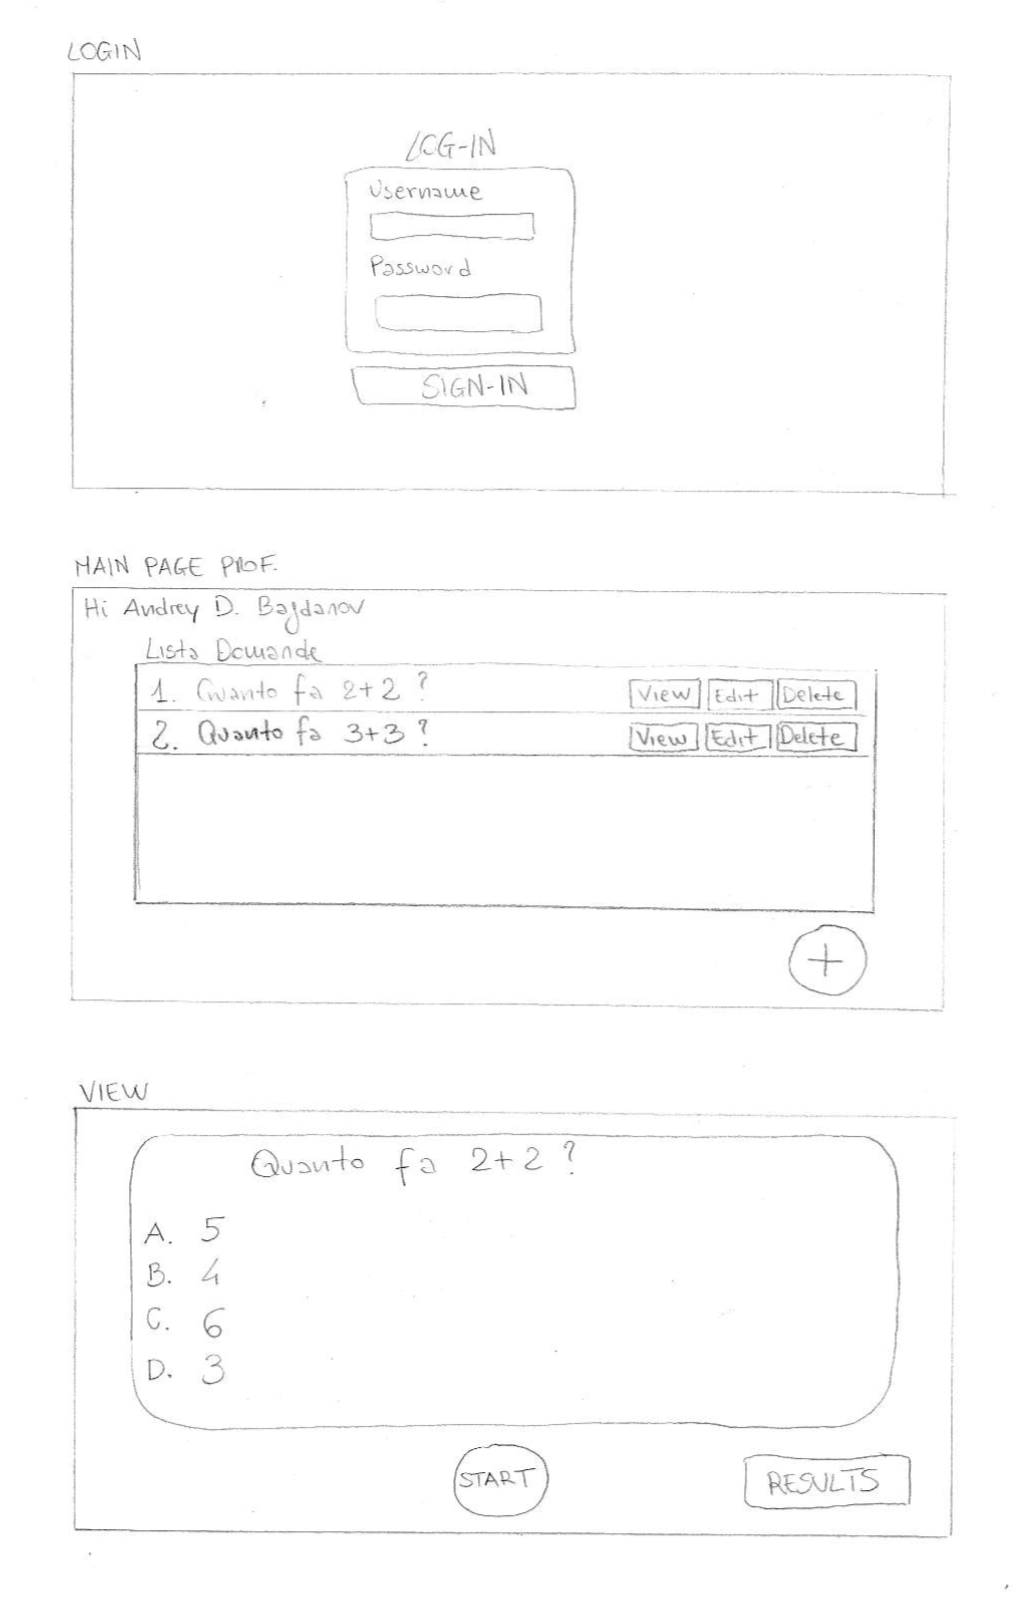 LOGIN
LOG-IN
Username
Password
SIGN-IN
MAIN PAGE PROF.
Hi Andrey D. Bagdanov
Lista Domande
1. Quanto fa 2+2 ? View Edit Delete
2. Quanto fa 3+3 ? View Edit Delete
+
VIEW
Quanto fa 2+2 ?
A. 5
B. 4
C. 6
D. 3
START RESULTS